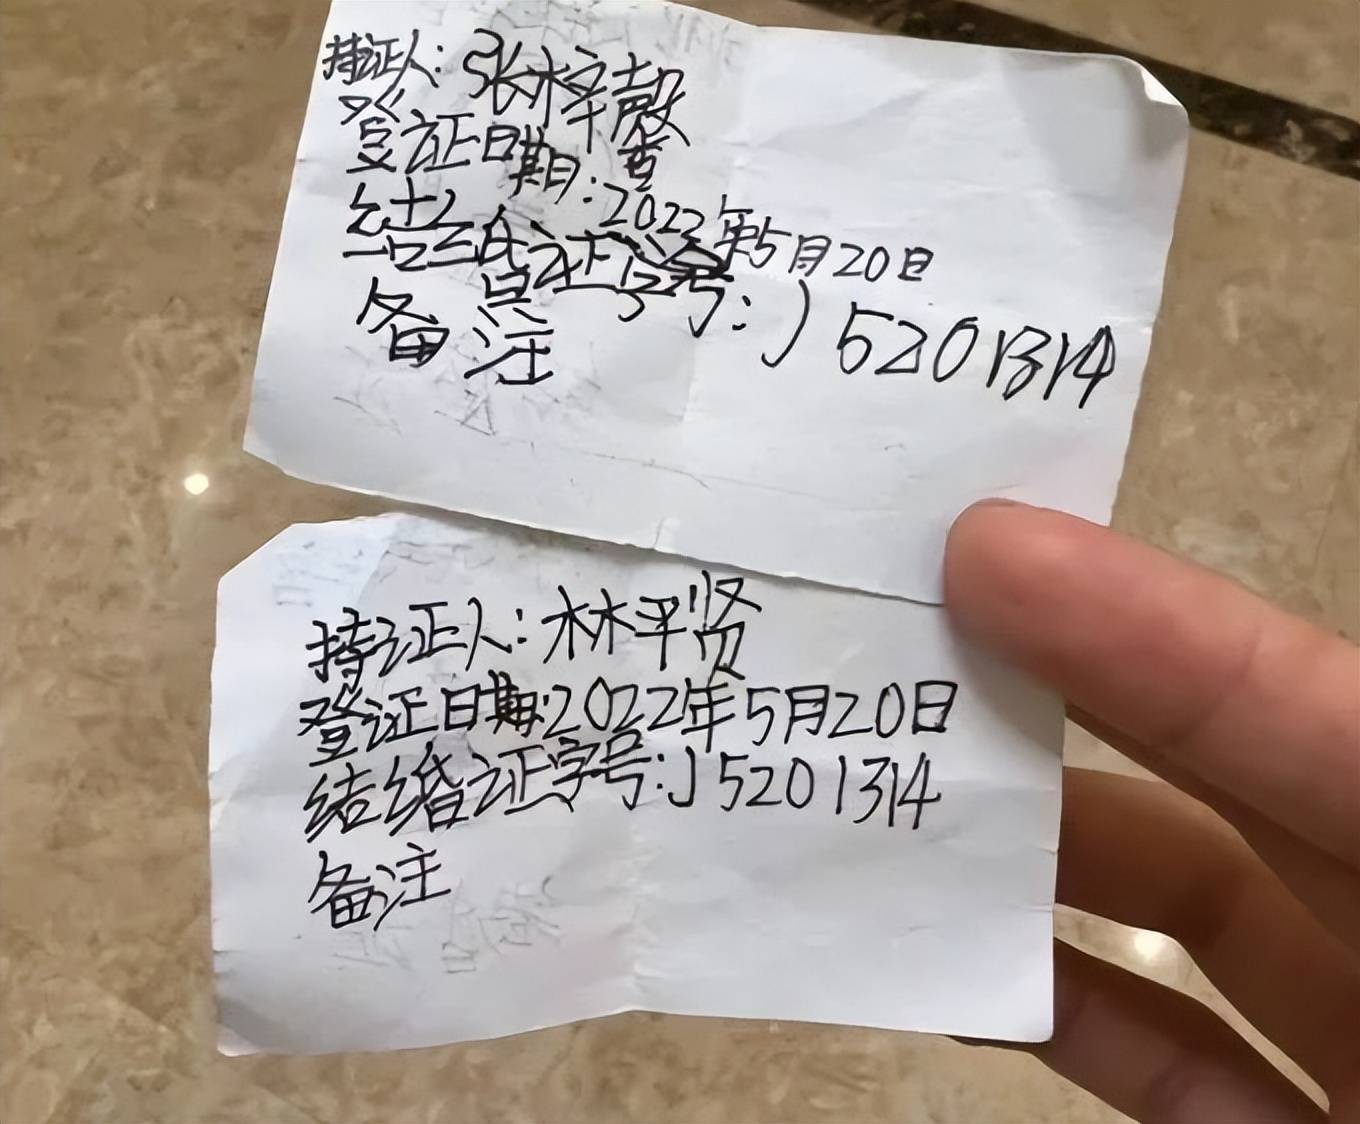 持证人：张梓毅
登证日期：2022年5月20日
结婚证字号：J5201314
备注
持证人：林平贤
登证日期：2022年5月20日
结婚证字号：J5201314
备注